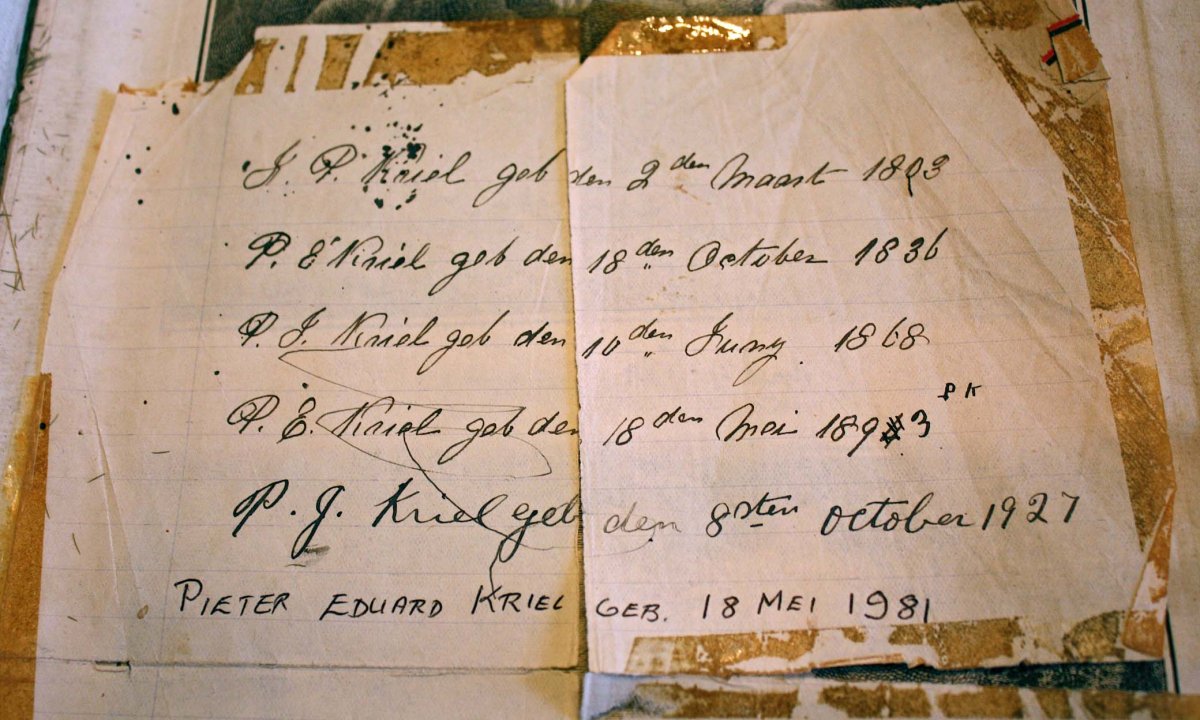 J. P. Kriel geb den 2den Maart 1803
P. E Kriel geb den 18den October 1836
P. J. Kriel geb den 10den Juny 1868
P K
P. E. Kriel geb den 18den Mei 1893
P. J. Kriel geb den 8sten october 1927
PIETER EDUARD KRIEL GEB. 18 MEI 1981